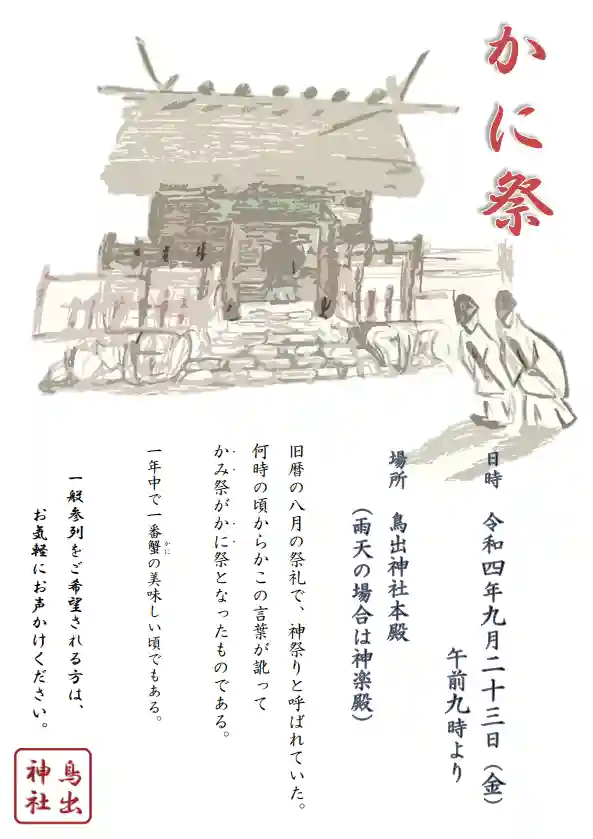 かに祭
日時　令和四年九月二十三日（金）
午前九時より
場所　鳥出神社本殿
（雨天の場合は神楽殿）
旧暦の八月の祭礼で、神祭りと呼ばれていた。
何時の頃からかこの言葉が訛って
かみ祭がかに祭となったものである。
一年中で一番蟹の美味しい頃でもある。
かに
一般参列をご希望される方は、
お気軽にお声かけください。
鳥出
神社